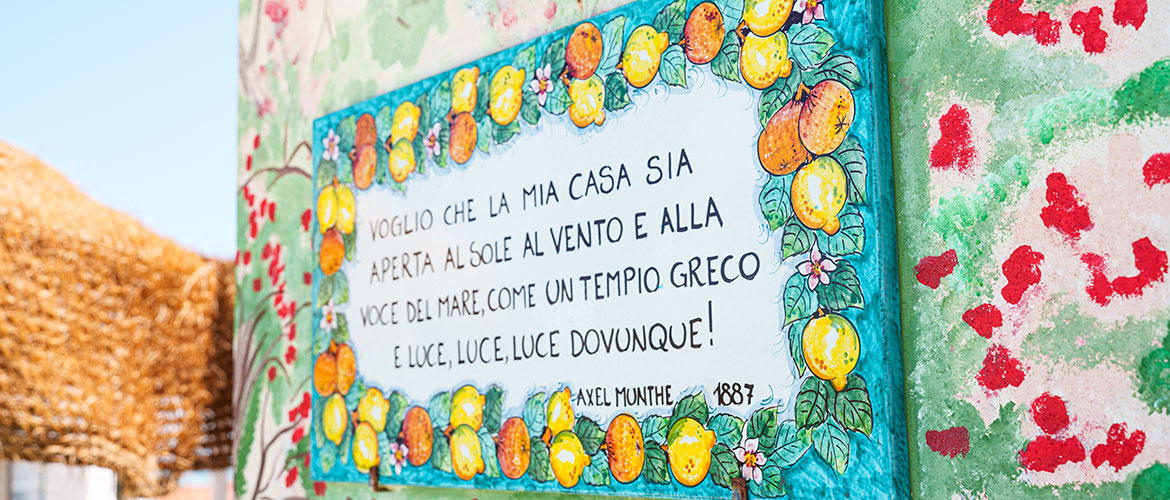 VOGLIO CHE LA MIA CASA SIA
APERTA AL SOLE AL VENTO E ALLA
VOCE DEL MARE, COME UN TEMPIO GRECO
E LUCE, LUCE, LUCE DOVUNQUE!
AXEL MUNTHE 1887